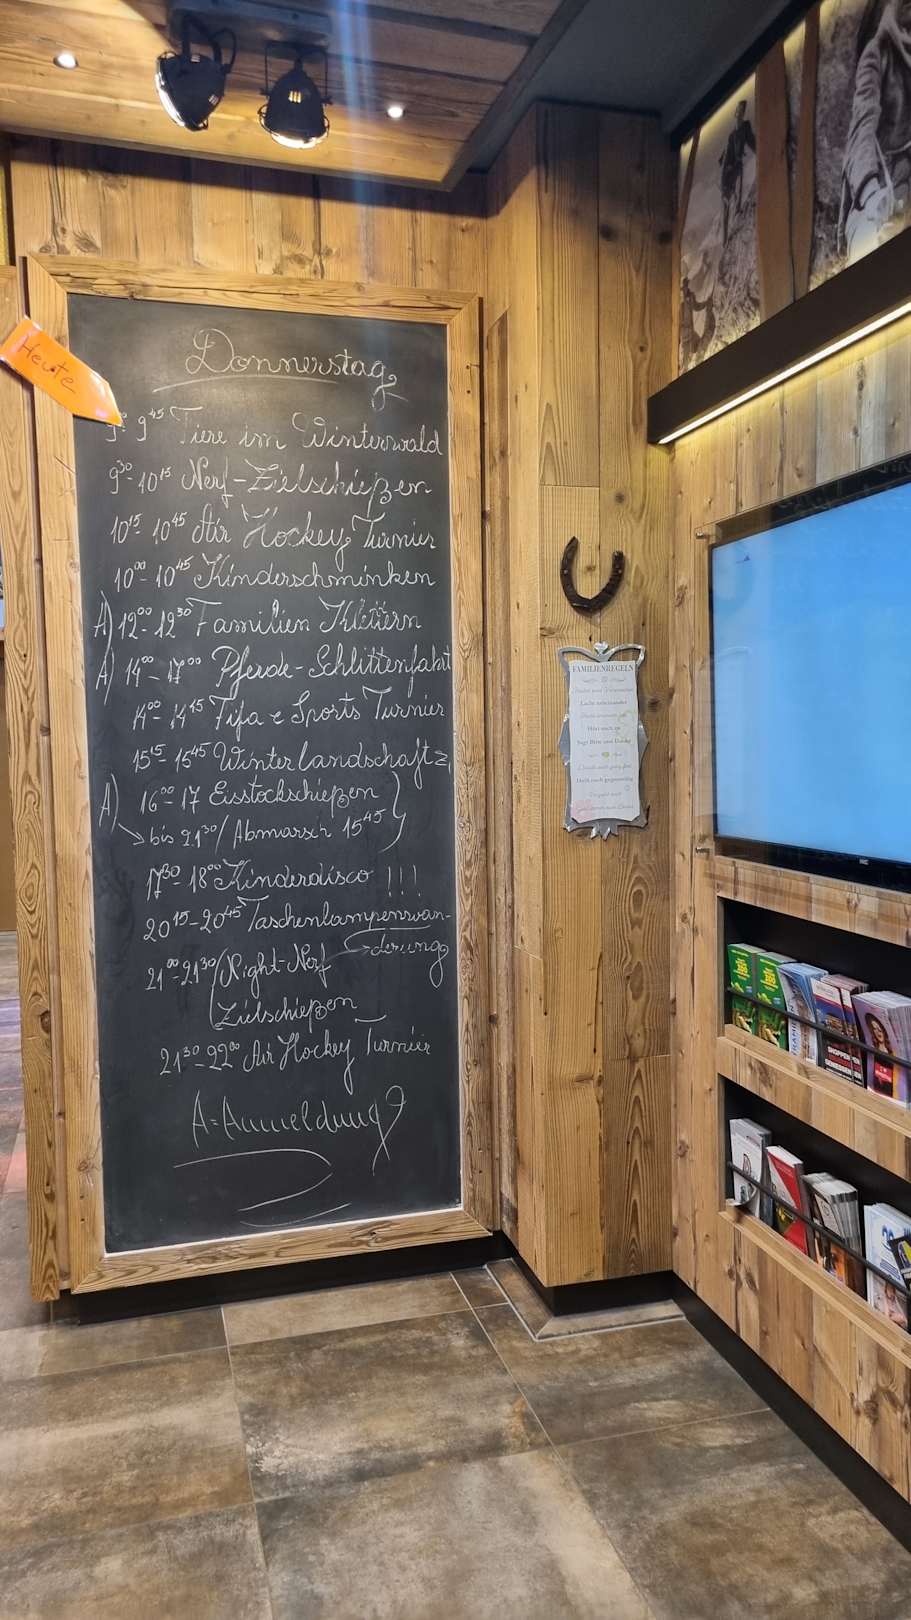 Heute
Donnerstag
9⁴⁵ Tiere im Winterwald
9³⁰-10¹⁵ Nerf-Zielschießen
10¹⁵-10⁴⁵ Air Hockey Turnier
10⁰⁰-10⁴⁵ Kinderschminken
A) 12⁰⁰-12³⁰ Familien Klettern
A) 14⁰⁰-17⁰⁰ Pferde-Schlittenfahrt
14⁰⁰-14⁴⁵ Fifa e Sports Turnier
15¹⁵-15⁴⁵ Winterlandschaft
A) 16⁰⁰-17 Eisstockschießen
→bis 21³⁰/Abmarsch 15⁴⁵
17³⁰-18⁰⁰ Kinderdisco !!!
20¹⁵-20⁴⁵ Taschenlampenwan-
derung
21⁰⁰-21³⁰/Night-Nerf
Zielschießen
21³⁰-22⁰⁰ Air Hockey Turnier
A=Anmeldung
FAMILIENREGELN
Lacht miteinander
Hört euch zu
Sagt Bitte und Danke
Helft euch gegenseitig